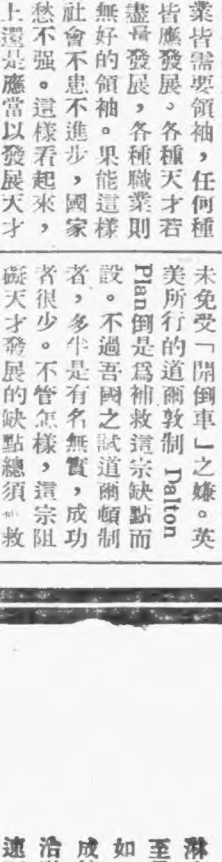 業皆需要領袖，任何種
皆應發展。各種天才若
盡量發展，各種職業則
無好的領袖。果能這樣
社會不患不進步，國家
愁不强。這樣看起來，
上還是應當以發展天才
未免受「開倒車」之嫌。英
美所行的道爾敦制 Dalton
Plan倒是爲補救這宗缺點而
設。不過吾國之試道爾頓制
者，多半是有名無實，成功
者很少。不管怎樣，這宗阻
礙天才發展的缺點總須救
淋
至
如
成
洽
速